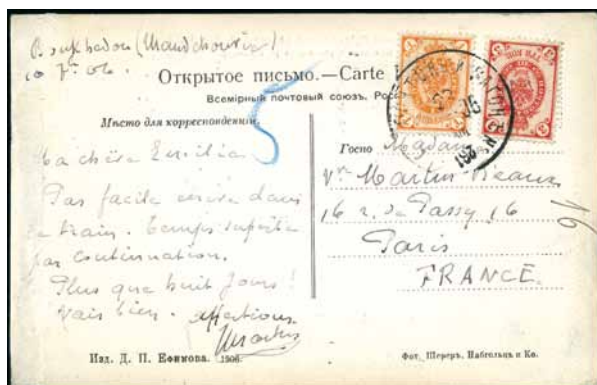 (Mandchourie)
Открытое письмо.—Carte
Всемірный почтовый союзъ. Росс
Мѣсто для корреспонденціи.
Ma chère Emilia
Pas facile écrire dans
le train. Temps superbe
par continuation.
Plus que huit jours !
Vais bien. affections
Martin
Изд. Д. П. Ефимова. 1906.
Madame
Vve Martin-
16 r. de Passy 16
Paris
FRANCE.
16
Фот. Шереръ, Набгольцъ и Ко.